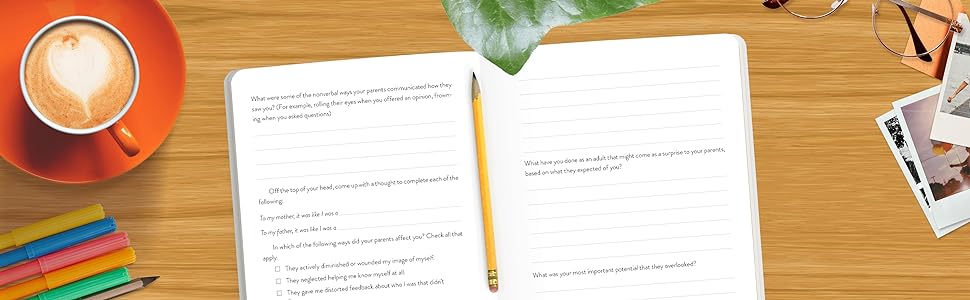 What were some of the nonverbal ways your parents communicated how they
saw you? (For example, rolling their eyes when you offered an opinion, frown-
ing when you asked questions)
Off the top of your head, come up with a thought to complete each of the
following:
To my mother, it was like I was a
To my father, it was like I was a
In which of the following ways did your parents affect you? Check all that
apply.
They actively diminished or wounded my image of myself.
They neglected helping me know myself at all.
They gave me distorted feedback about who I was that didn't
What have you done as an adult that might come as a surprise to your parents,
based on what they expected of you?
What was your most important potential that they overlooked?